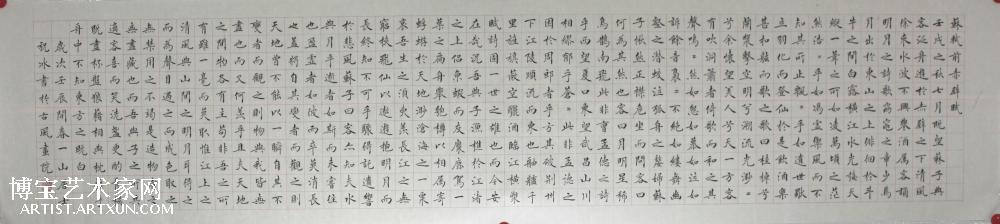 蘇軾前赤壁賦
壬戌之秋七月既望蘇子與
客泛舟遊於赤壁之下清風
徐來水波不興舉酒屬客誦
明月之詩歌窈窕之章少焉
月出於東山之上徘徊於斗
牛之間白露橫江水光接天
縱一葦之所如凌萬頃之茫
然浩浩乎如馮虛御風而不
知其所止飄飄乎如遺世獨
立羽化而登仙於是飲酒樂
甚扣舷而歌之歌曰桂棹兮
蘭槳擊空明兮溯流光渺渺
兮余懷望美人兮天一方客
有吹洞簫者倚歌而和之其
聲嗚嗚然如怨如慕如泣如
訴餘音裊裊不絕如縷舞幽
壑之潛蛟泣孤舟之嫠婦蘇
子愀然正襟危坐而問客曰
何為其然也客曰月明星稀
烏鵲南飛此非曹孟德之詩
乎西望夏口東望武昌山川
相繆鬱乎蒼蒼此非孟德之
困於周郎者乎方其破荊州
下江陵順流而東也舳艫千
里旌旗蔽空釃酒臨江橫槊
賦詩固一世之雄也而今安
在哉況吾與子漁樵於江渚
之上侶魚蝦而友麋鹿駕一
葉之扁舟舉匏樽以相屬寄
蜉蝣於天地渺滄海之一粟
哀吾生之須臾羨長江之無
窮挾飛仙以遨遊抱明月而
長終知不可乎驟得託遺響
於悲風蘇子曰客亦知夫水
與月乎逝者如斯而未嘗往
也盈虛者如彼而卒莫消長
也蓋將自其變者而觀之則
天地曾不能以一瞬自其不
變者而觀之則物與我皆無
盡也而又何羨乎且夫天地
之間物各有主苟非吾之所
有雖一毫而莫取惟江上之
清風與山間之明月耳得之
而為聲目遇之而成色取之
無禁用之不竭是造物者之
無盡藏也而吾與子之所共
適客喜而笑洗盞更酌肴核
既盡杯盤狼藉相與枕藉乎
舟中不知東方之既白
歲次壬辰春一山
水書於古風畫院
博宝艺术家网
ARTIST.ARTXUN.COM
博宝艺术家网
ARTIST.ARTXUN.COM